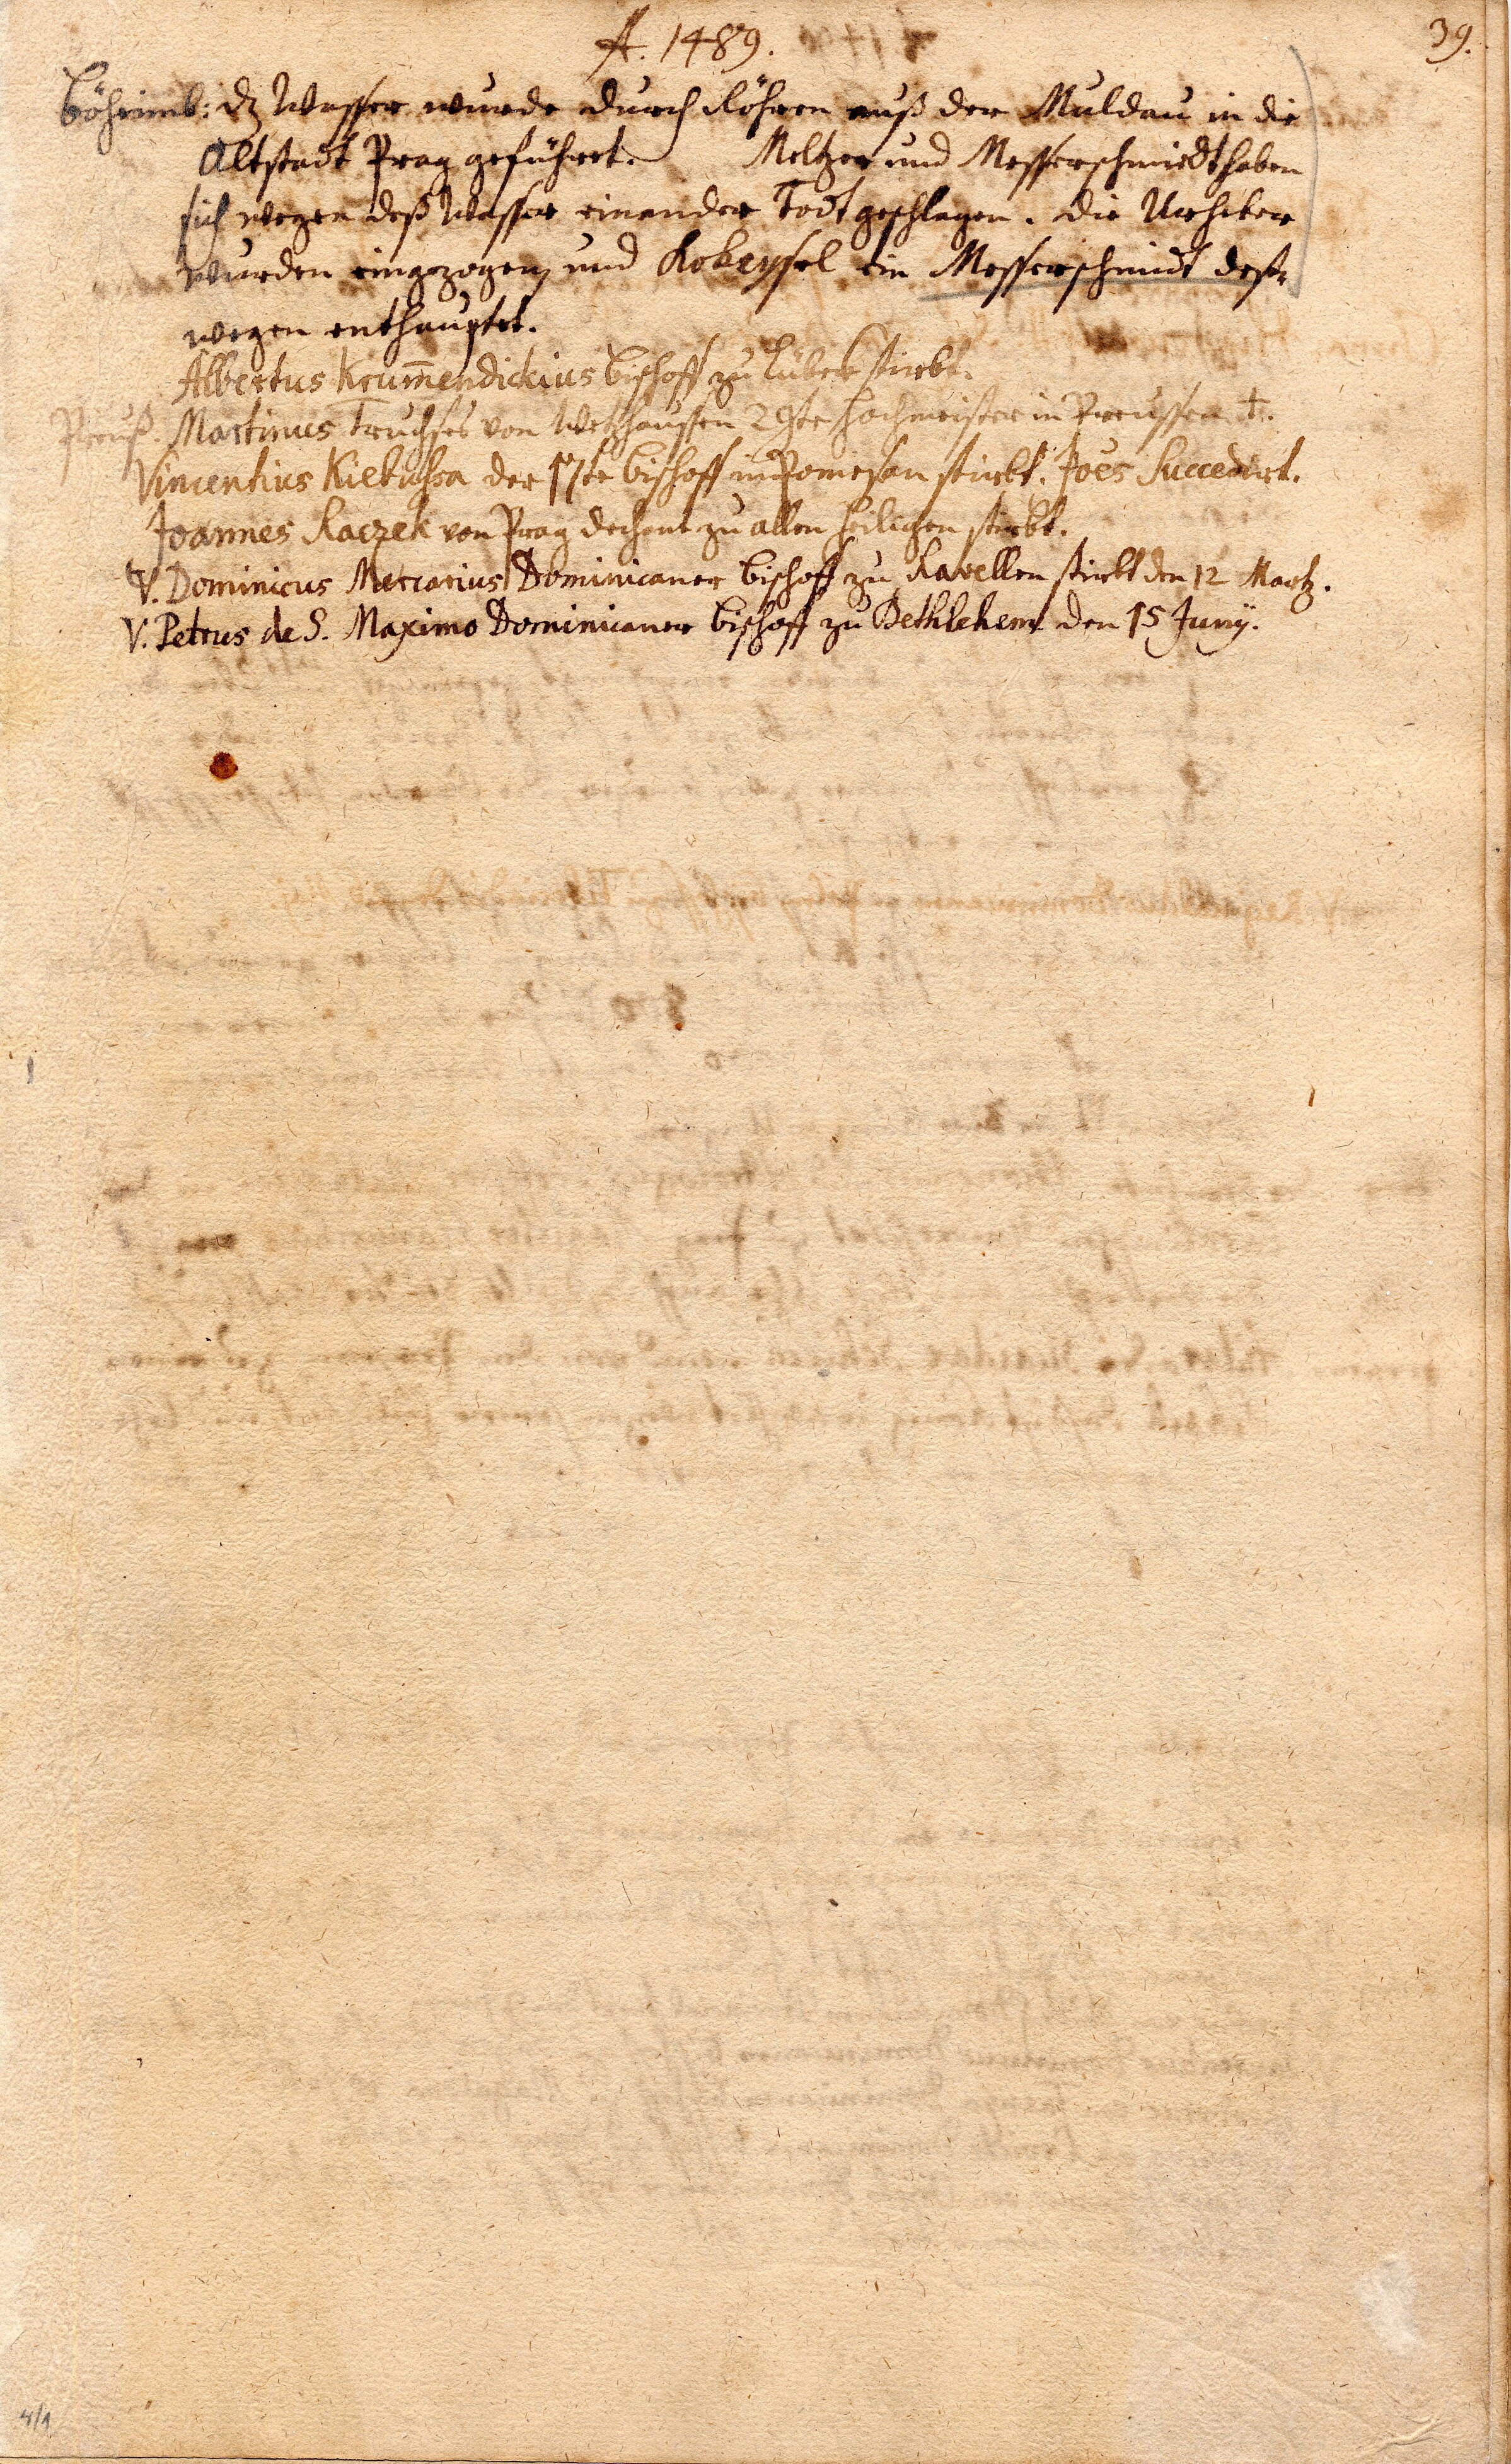 39.
A. 1489.
Böheimb: dz Wasser wurde durch Röhren auß der Muldau in die
Altstadt Prag geführet. Meltzer und Messerschmiedt haben
sich wegen deß Wasser einander Todt geschlagen. die Urheber
wurden eingezogen, und Kokeysel ein Messerschmidt deß-
wegen enthauptet.
Albertus Krum̄endickius Bischoff zu Lübek stirbt.
Preuß. Martinus Truchses von Wetzhaussen 29te Hochmeister in Preussen †.
Vincentius Kielbassa der 17te Bischoff in Pomesan stirbt. Joēs Succedirt.
Joannes Raczek von Prag dechant zu allen Heiligen stirbt.
V. Dominicus Mercarius Dominicaner Bischoff zu Ravellen stirbt den 12 Martz.
V. Petrus de S. Maximo Dominicaner Bischoff zu Bethlehem den 15 Junÿ.
4/1